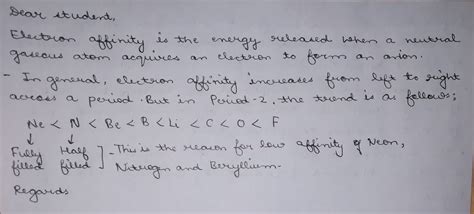 Dear student,
Electron affinity is the energy released when a neutral
gaseous atom acquires an electron to form an anion.
- In general, electron affinity increases from left to right
across a period. But in Period-2, the trend is as follows;
Ne < N < Be < B < Li < C < O < F
↓ ↓
Fully Half ] - This is the reason for low affinity of Neon,
filled filled Nitrogen and Beryllium.
Regards